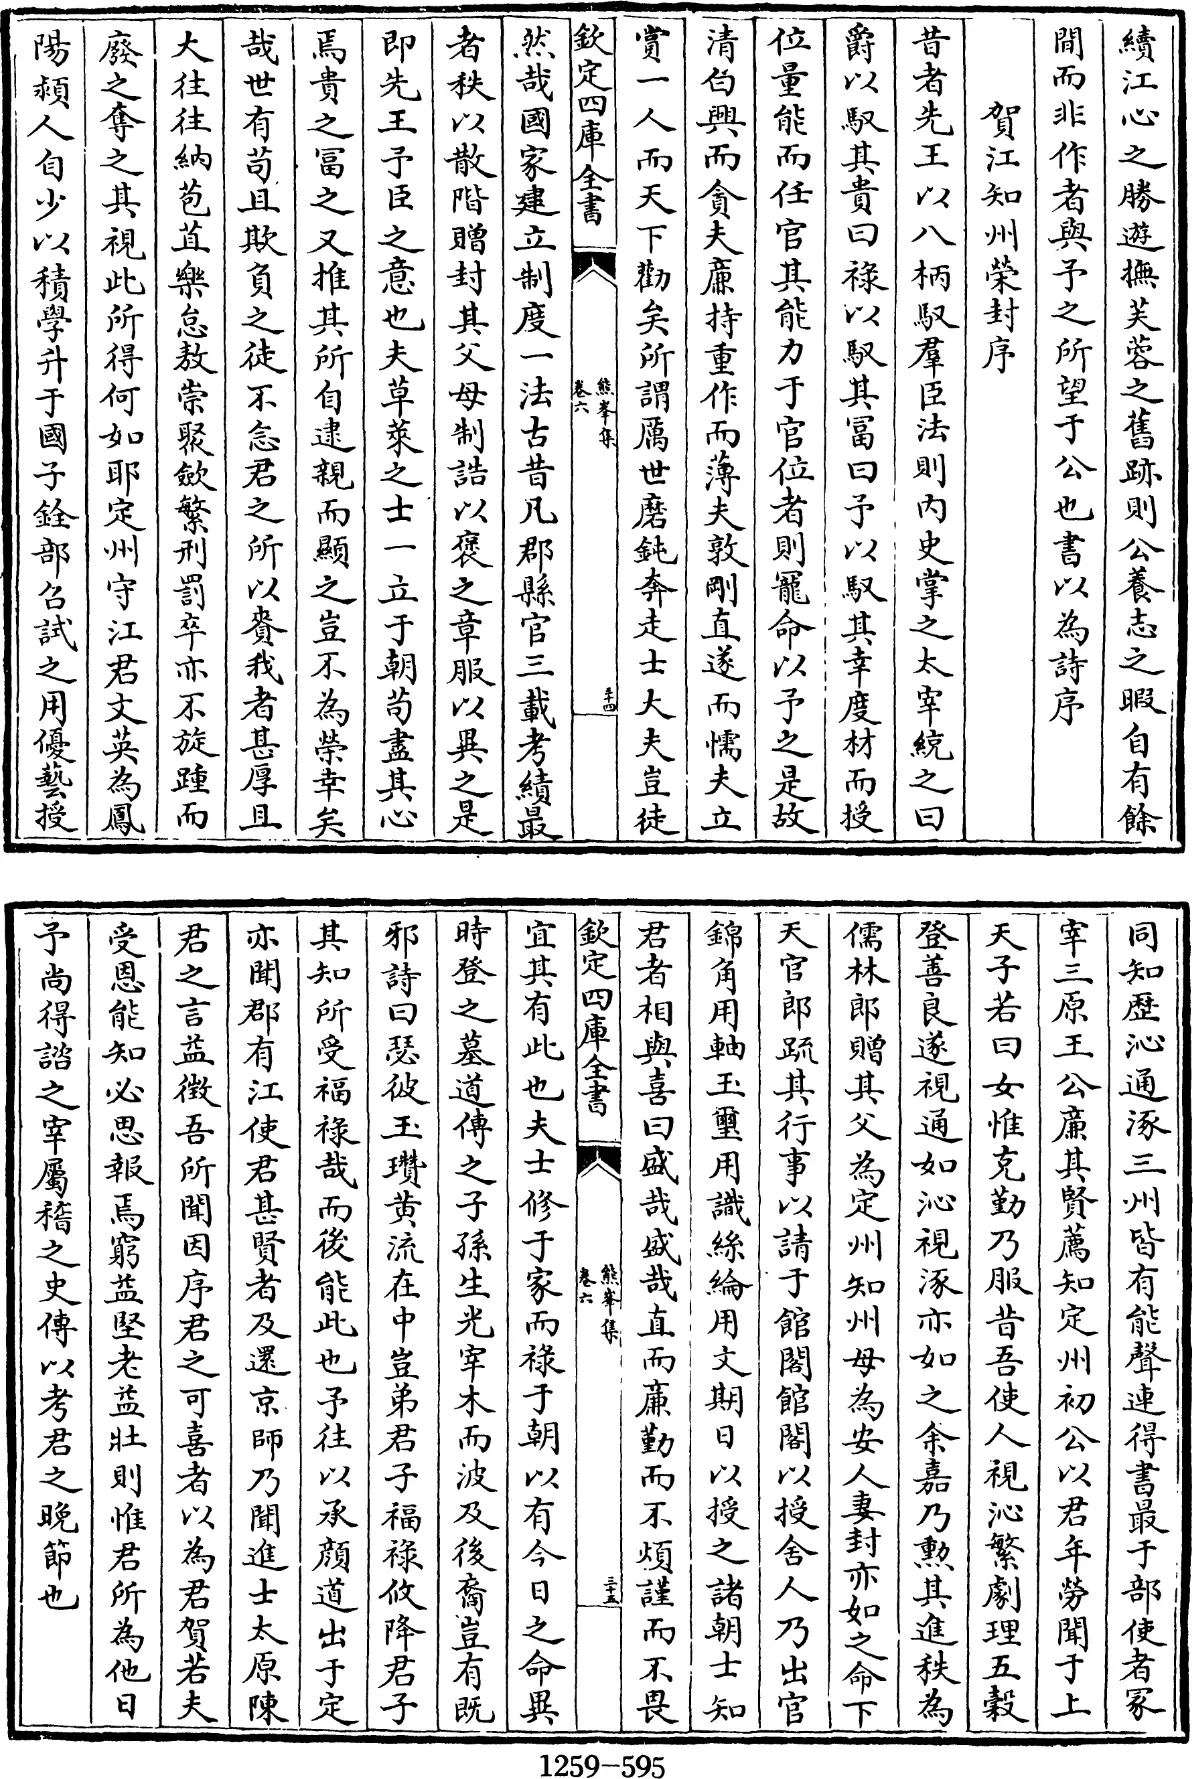 續江心之勝遊撫芙蓉之舊跡則公養志之暇自有餘
間而非作者與予之所望于公也書以為詩序
賀江知州榮封序
昔者先王以八柄馭羣臣法則内史掌之太宰統之曰
爵以馭其貴曰禄以馭其富曰予以馭其幸度材而授
位量能而任官其能力于官位者則寵命以予之是故
清白興而貪夫廉持重作而薄夫敦剛直遂而懦夫立
賞一人而天下勸矣所謂厲世磨鈍奔走士大夫豈徒
欽定四庫全書
熊峯集
卷六
三十四
然哉國家建立制度一法古昔凡郡縣官三載考績最
者秩以散階贈封其父母制誥以褒之章服以異之是
即先王予臣之意也夫草萊之士一立于朝苟盡其心
焉貴之富之又推其所自逮親而顯之豈不為榮幸矣
哉世有苟且欺負之徒不念君之所以賚我者甚厚且
大往往納苞苴樂怠敖崇聚斂繁刑罰卒亦不旋踵而
廢之奪之其視此所得何如耶定州守江君文英為鳳
陽潁人自少以積學升于國子銓部召試之用優藝授
同知歴沁通涿三州皆有能聲連得書最于部使者冢
宰三原王公廉其賢薦知定州初公以君年勞聞于上
天子若曰女惟克勤乃服昔吾使人視沁繁劇理五穀
登善良遂視通如沁視涿亦如之余嘉乃勲其進秩為
儒林郎贈其父為定州知州母為安人妻封亦如之命下
天官郎疏其行事以請于館閣館閣以授舍人乃出官
錦角用軸玉璽用識絲綸用文期日以授之諸朝士知
君者相與喜曰盛哉盛哉直而廉勤而不煩謹而不畏
欽定四庫全書
熊峯集
卷六
三十五
宜其有此也夫士修于家而禄于朝以有今日之命異
時登之墓道傳之子孫生光宰木而波及後裔豈有既
邪詩曰瑟彼玉瓚黄流在中豈弟君子福禄攸降君子
其知所受福禄哉而後能此也予往以承顔道出于定
亦聞郡有江使君甚賢者及還京師乃聞進士太原陳
君之言益徴吾所聞因序君之可喜者以為君賀若夫
受恩能知必思報焉窮益堅老益壯則惟君所為他日
予尚得諮之宰屬稽之史傳以考君之晚節也
1259-595